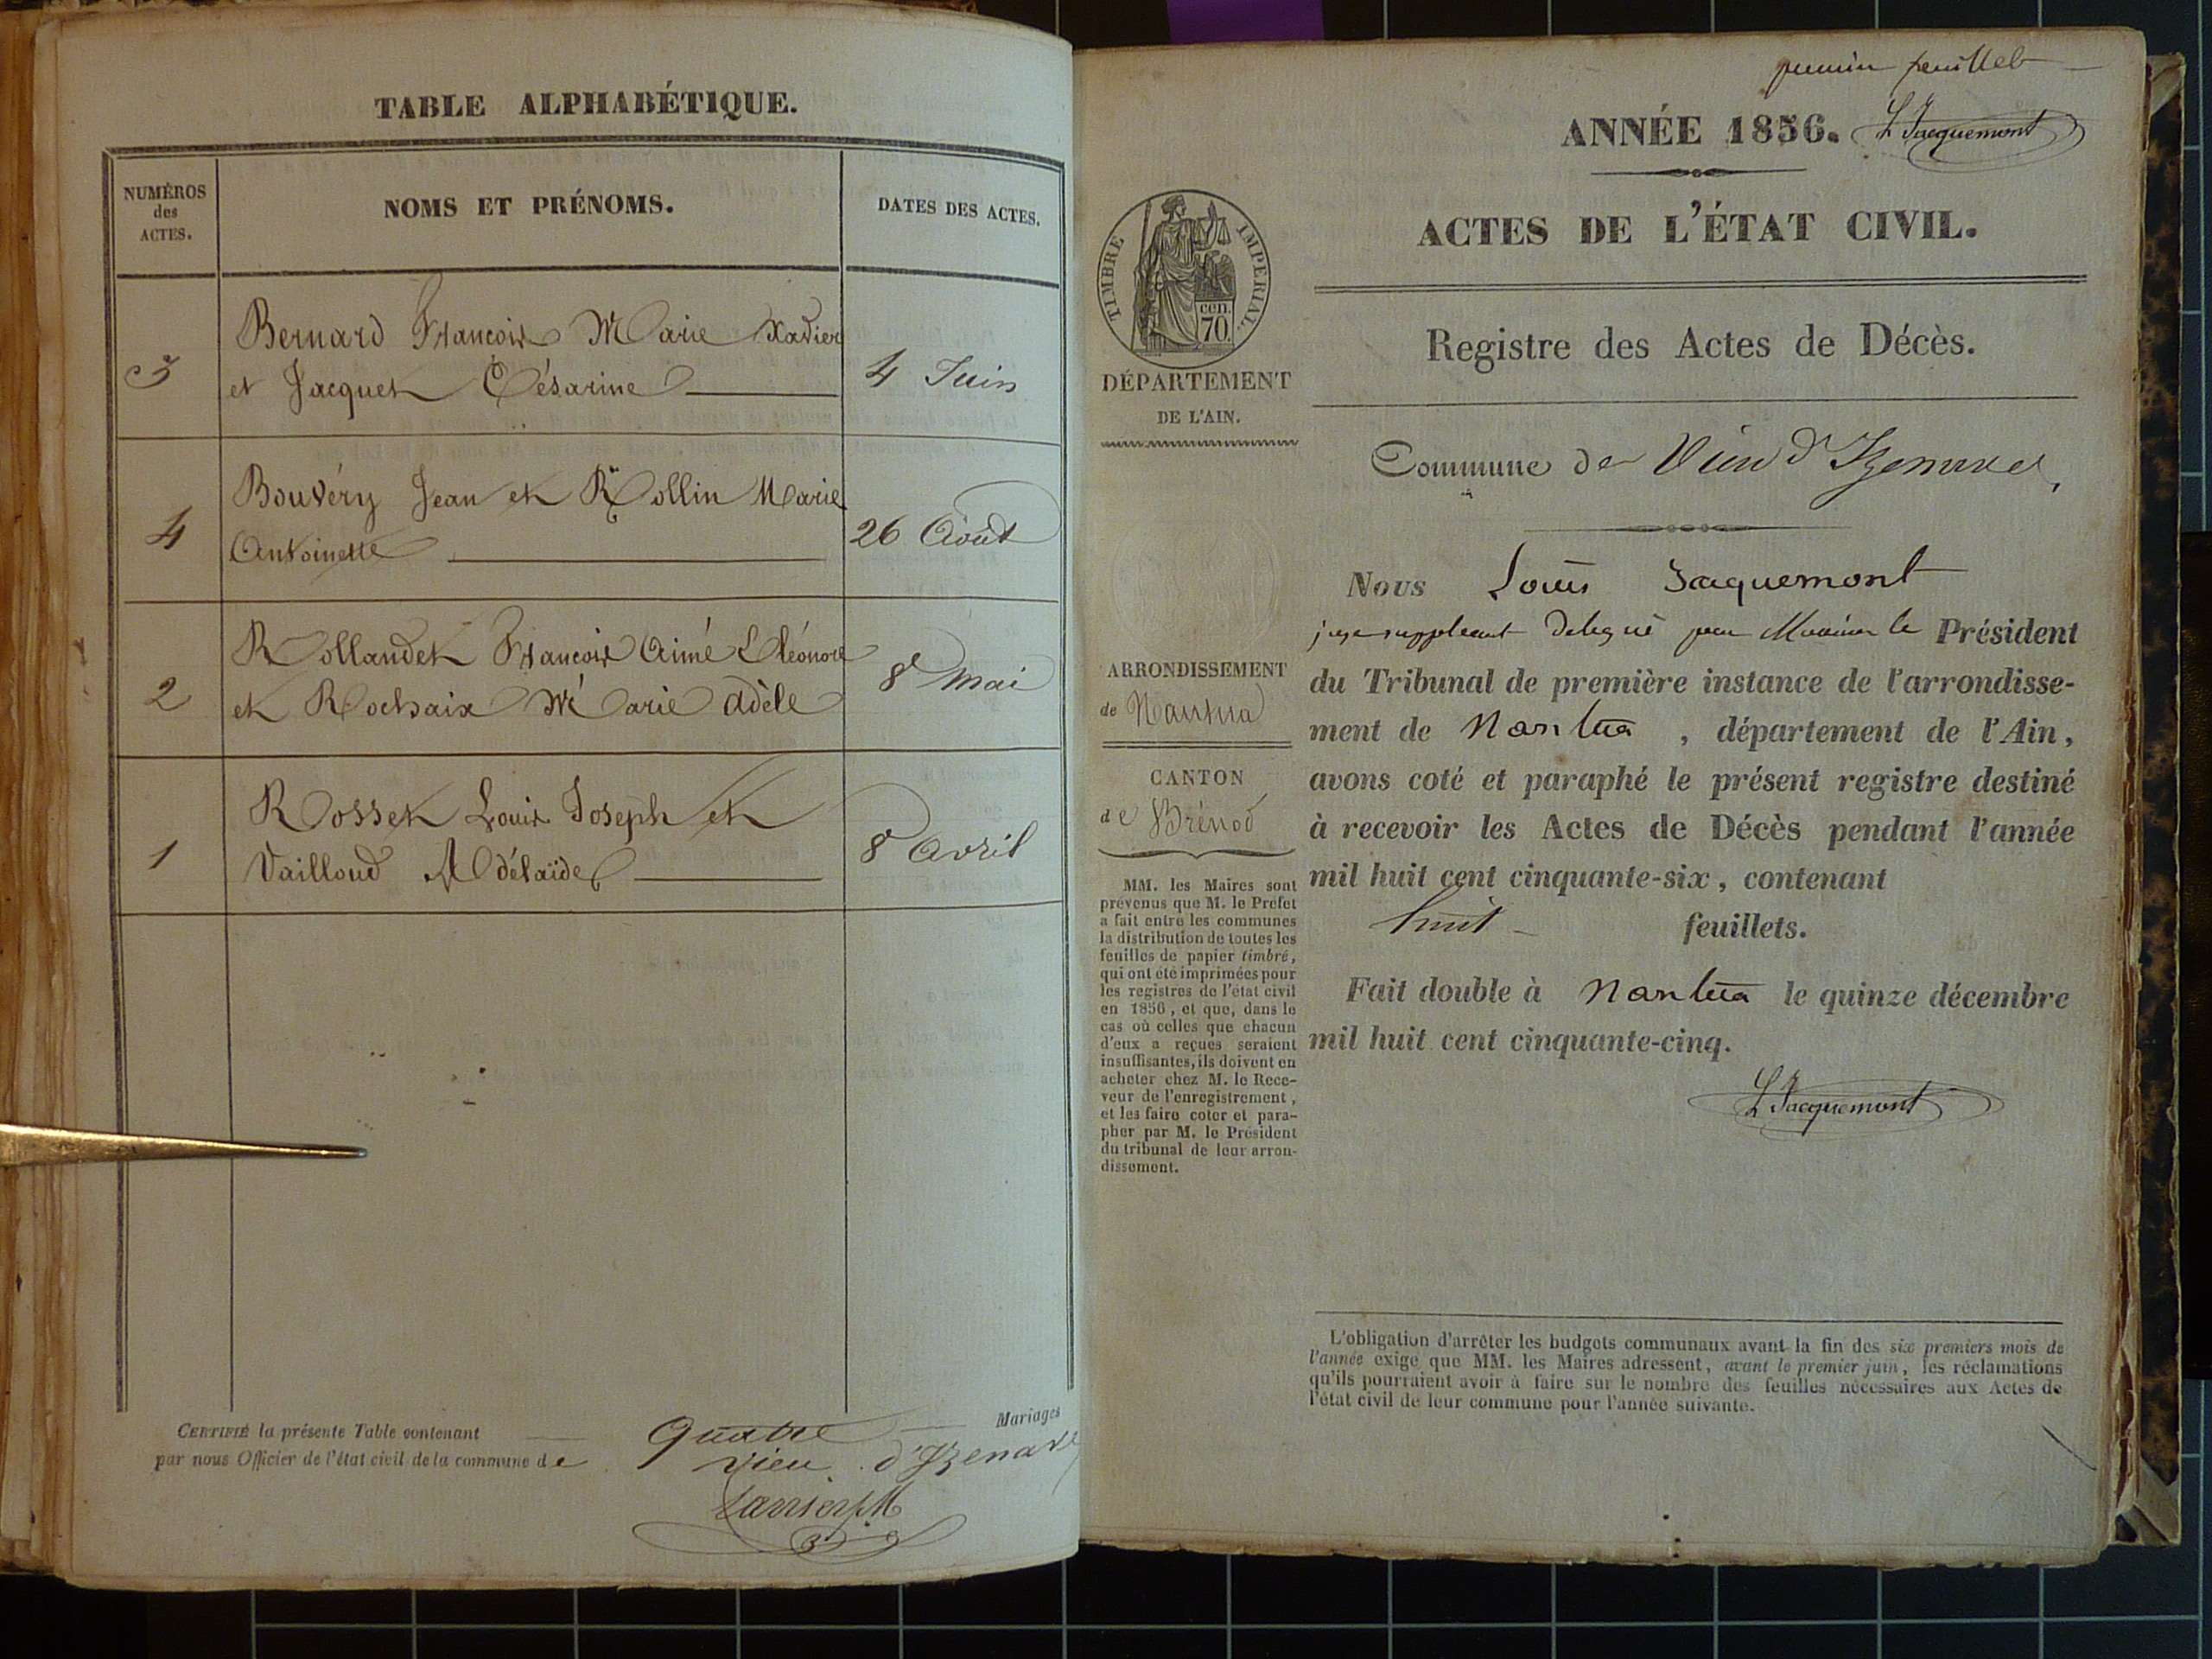 TABLE ALPHABÉTIQUE.
NUMÉROS
des
ACTES.
NOMS ET PRÉNOMS.
DATES DES ACTES.
3
Bernard François Marie Xavier
et Jacquet Césarine
4 Juin
4
Bouvéry Jean et Rollin Marie
Antoinette
26 Août
2
Rollandet François Aimé Eléonore
et Rochaix Marie Adèle
8 Mai
1
Rosset Louis Joseph et
Vailloud Adélaïde
8 Avril
CERTIFIÉ la présente Table contenant quatre Mariages
par nous Officier de l'état civil de la commune de vieu d'Izenave
premier feuillet
ANNÉE 1856. L Jacquemont
ACTES DE L'ÉTAT CIVIL.
Registre des Actes de Décès.
Commune de Vieu d'Izenave,
TIMBRE IMPERIAL.
cen.
70.
DÉPARTEMENT
DE L'AIN.
ARRONDISSEMENT
de Nantua
CANTON
de Brénod
MM. les Maires sont
prévenus que M. le Préfet
a fait entre les communes
la distribution de toutes les
feuilles de papier timbré,
qui ont été imprimées pour
les registres de l'état civil
en 1856, et que, dans le
cas où celles que chacun
d'eux a reçues seraient
insuffisantes, ils doivent en
acheter chez M. le Rece-
veur de l'enregistrement,
et les faire coter et para-
pher par M. le Président
du tribunal de leur arron-
dissement.
Nous Louis Jacquemont
juge suppléant délégué par Monsieur le Président
du Tribunal de première instance de l'arrondisse-
ment de Nantua, département de l'Ain,
avons coté et paraphé le présent registre destiné
à recevoir les Actes de Décès pendant l'année
mil huit cent cinquante-six, contenant
huit feuillets.
Fait double à Nantua le quinze décembre
mil huit cent cinquante-cinq.
L Jacquemont
L'obligation d'arrêter les budgets communaux avant la fin des six premiers mois de
l'année exige que MM. les Maires adressent, avant le premier juin, les réclamations
qu'ils pourraient avoir à faire sur le nombre des feuilles nécessaires aux Actes de
l'état civil de leur commune pour l'année suivante.